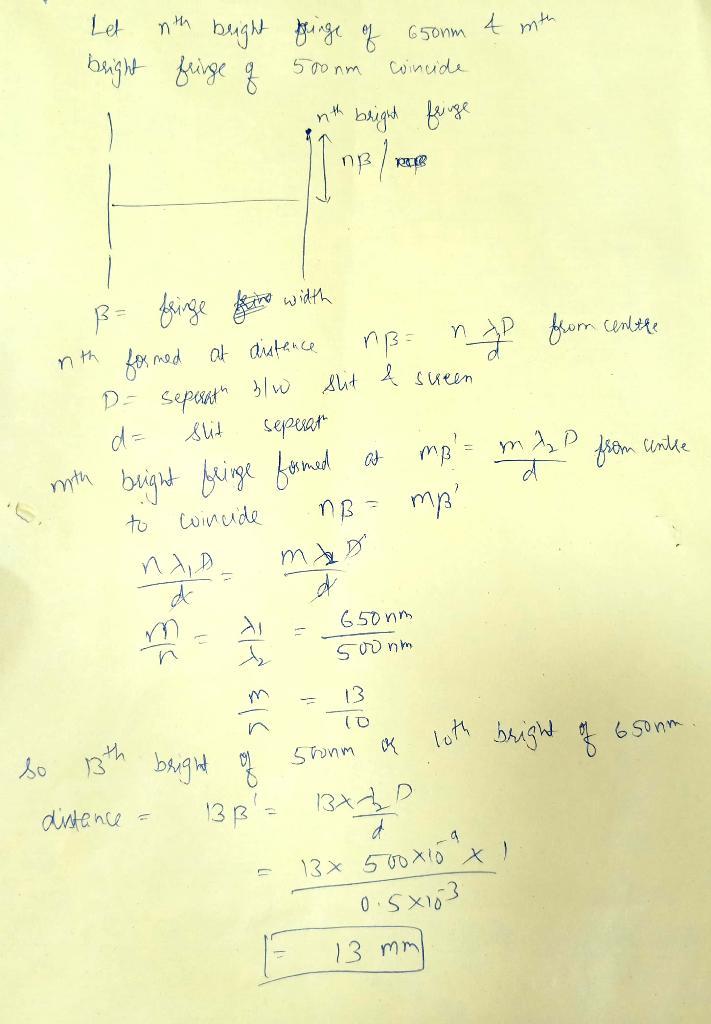 Let nth bright fringe of 650nm & mth
bright fringe of 500nm coincide
nth bright fringe
nβ /
β = fringe width
nth formed at distance nβ = nλ₁D/d from centre
D = seperatⁿ b/w slit & screen
d = slit seperatⁿ
mth bright fringe formed at mβ' = mλ₂D/d from centre
to coincide nβ = mβ'
nλ₁D/d = mλ₂D/d
m/n = λ₁/λ₂ = 650nm/500nm
m/n = 13/10
So 13th bright of 500nm or 10th bright of 650nm.
distance = 13β' = 13×λ₂D/d
= 13× 500×10⁻⁹ × 1/0.5×10⁻³
= 13 mm